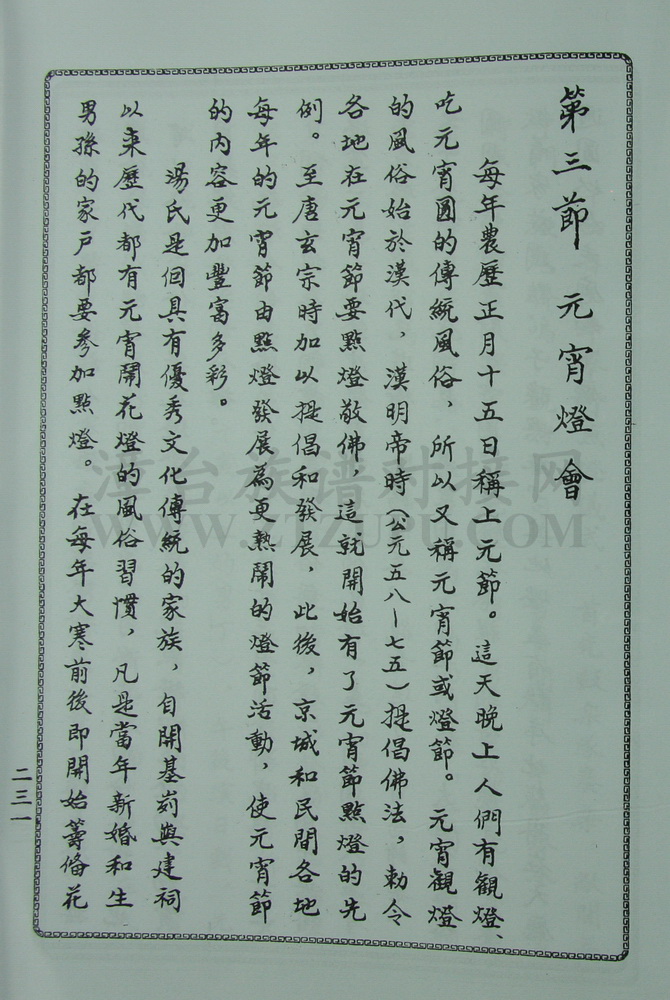 第三節 元宵燈會
每年農歷正月十五日稱上元節。這天晚上人們有觀燈、
吃元宵圓的傳統風俗，所以又稱元宵節或燈節。元宵觀燈
的風俗始於漢代，漢明帝時（公元五八－七五）提倡佛法，勅令
各地在元宵節要點燈敬佛，這就開始有了元宵節點燈的先
例。至唐玄宗時加以提倡和發展，此後，京城和民間各地
每年的元宵節由點燈發展為更熱鬧的燈節活動，使元宵節
的內容更加豐富多彩。
湯氏是個具有優秀文化傳統的家族，自開基前與建祠
以來歷代都有元宵開花燈的風俗習慣，凡是當年新婚和生
男孫的家戶都要參加點燈。在每年大寒前後即開始籌俻花
二三一
漳台族谱对接网
WWW.ZTZUPU.COM